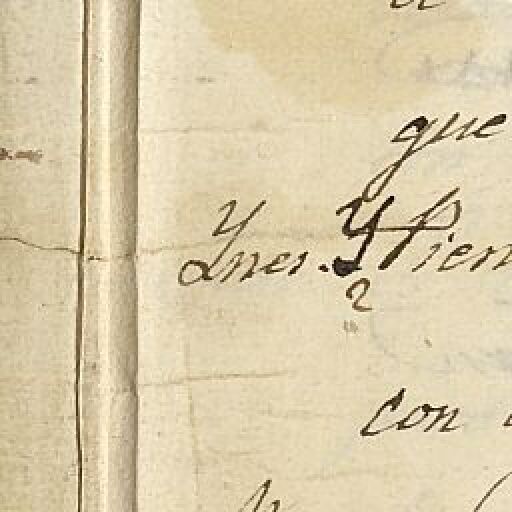 que
Ynes. Y Pien
2
con